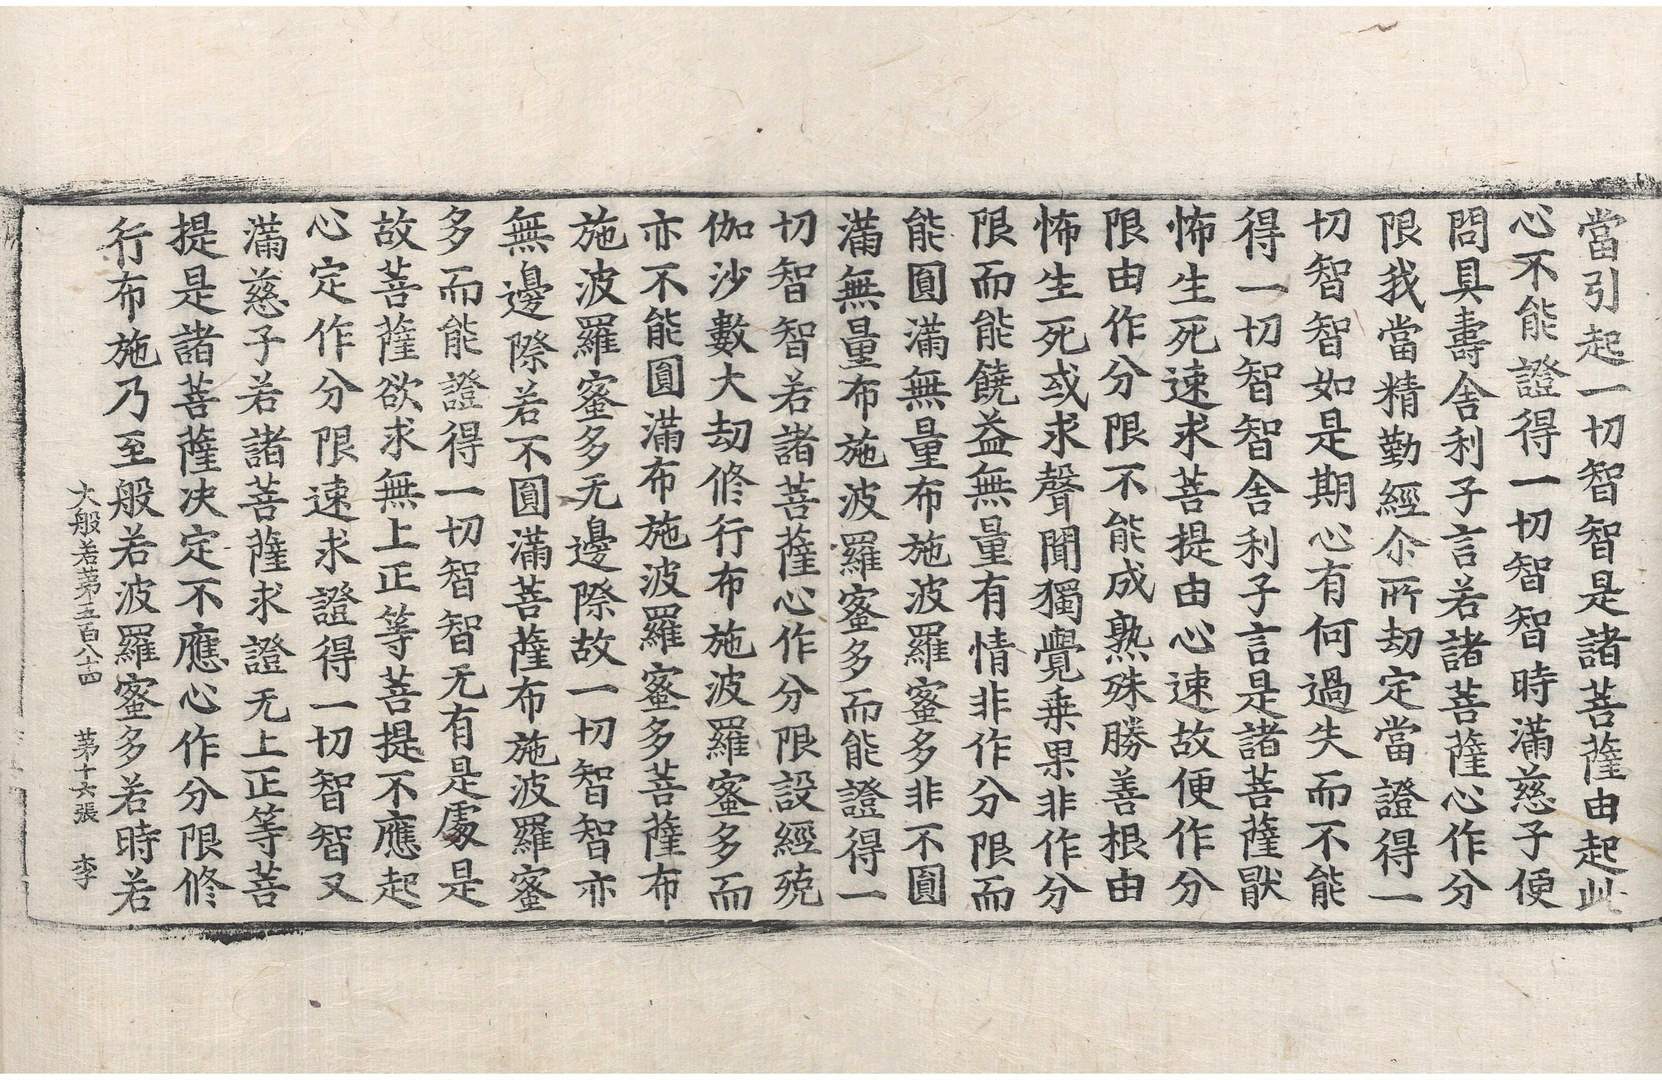 當引起一切智智是諸菩薩由起此
心不能證得一切智智時滿慈子便
問具壽舍利子言若諸菩薩心作分
限我當精勤經尒所劫定當證得一
切智智如是期心有何過失而不能
得一切智智舍利子言是諸菩薩猒
怖生死速求菩提由心速故便作分
限由作分限不能成熟殊勝善根由
怖生死或求聲聞獨覺乗果非作分
限而能饒益無量有情非作分限而
能圓滿無量布施波羅蜜多非不圓
滿無量布施波羅蜜多而能證得一
切智智若諸菩薩心作分限設經殑
伽沙數大劫修行布施波羅蜜多而
亦不能圓滿布施波羅蜜多菩薩布
施波羅蜜多无邊際故一切智智亦
無邊際若不圓滿菩薩布施波羅蜜
多而能證得一切智智无有是處是
故菩薩欲求無上正等菩提不應起
心定作分限速求證得一切智智又
滿慈子若諸菩薩求證无上正等菩
提是諸菩薩决定不應心作分限修
行布施乃至般若波羅蜜多若時若
大般若苐五百八十四 苐十六張 李